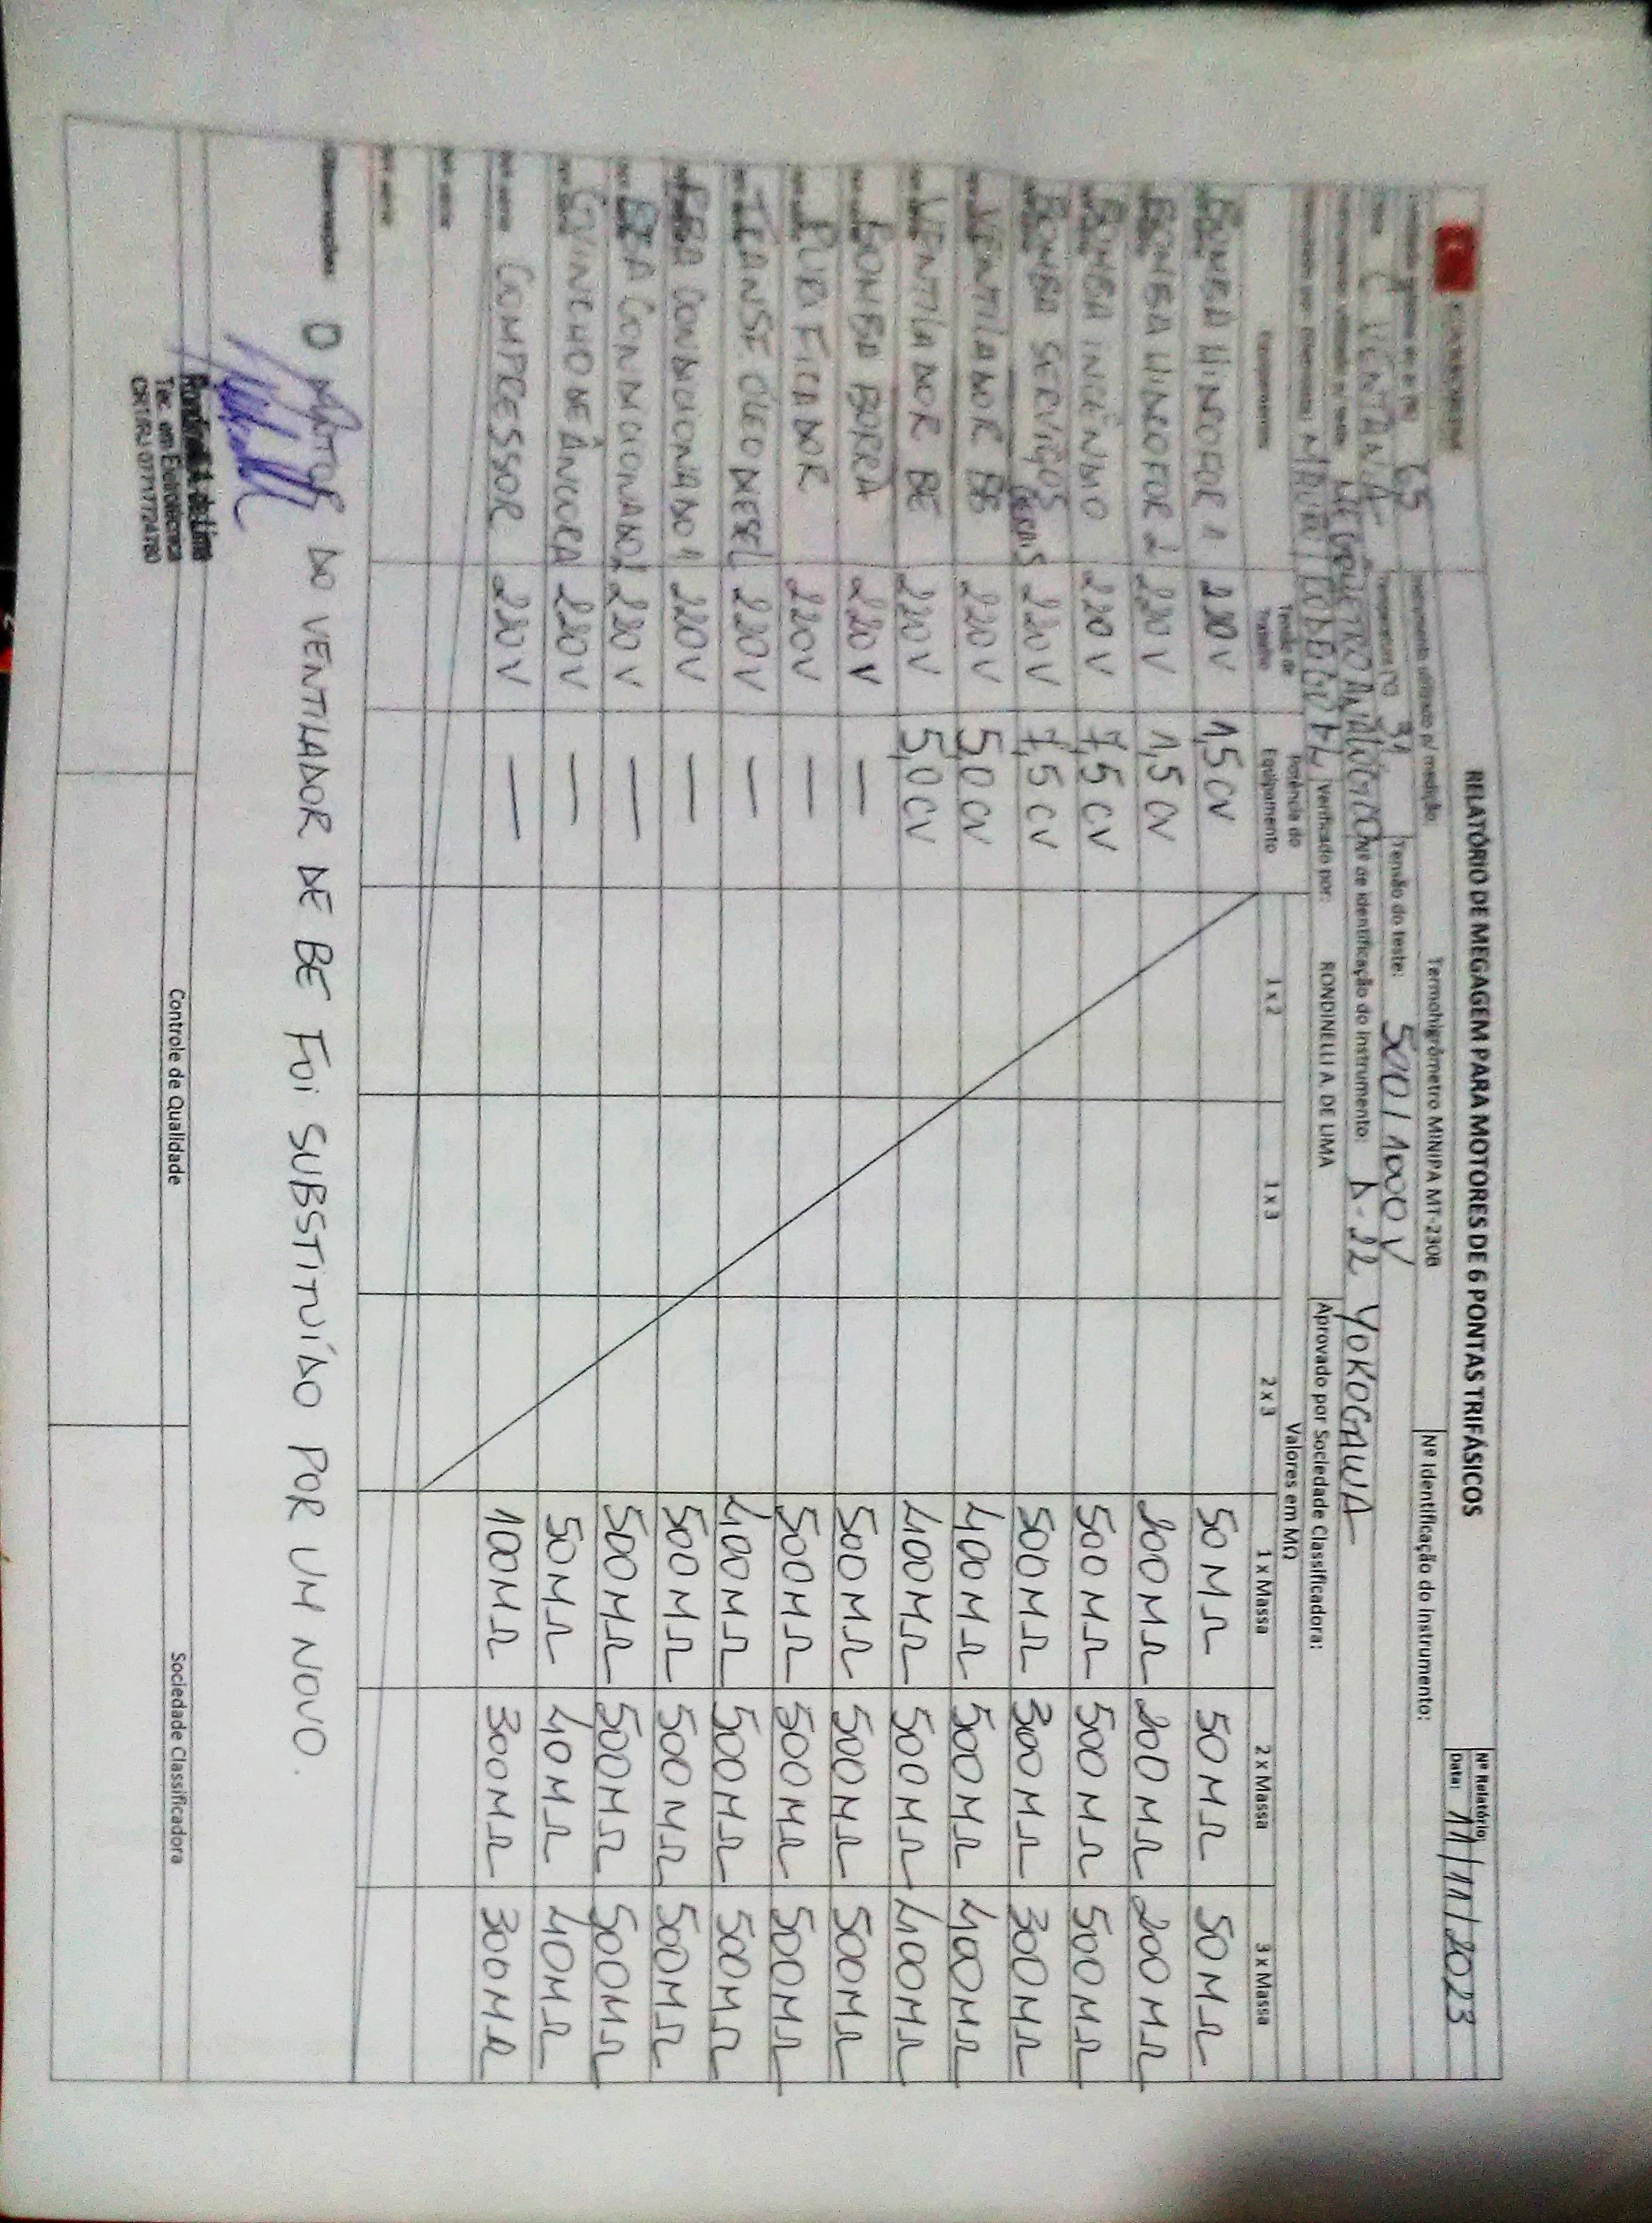 RELATÓRIO DE MEGAGEM PARA MOTORES DE 6 PONTAS TRIFÁSICOS
Nº Relatório:
Data: 11/11/2023
65
Instrumento utilizado p/ medição: Termohigrômetro MINIPA MT-230B
Nº Identificação do Instrumento:
C VENTANIA
Temperatura (ºC) 31
Tensão do teste: 500/1000V
MEGÔMETRO ANALÓGICO
Nº de identificação do Instrumento: D-22 YOKOGAWA
Verificado por: RONDINELLI A. DE LIMA
Aprovado por Sociedade Classificadora:
Equipamento
Tensão de Trabalho
Potência do Equipamento
Valores em MΩ
1 x 2 1 x 3 2 x 3 1 x Massa 2 x Massa 3 x Massa
BOMBA HIDROFOR 1 220V 1,5CV 50MΩ 50MΩ 50MΩ
BOMBA HIDROFOR 2 220V 1,5CV 200MΩ 200MΩ 200MΩ
BOMBA INCÊNDIO 220V 7,5CV 500MΩ 500MΩ 500MΩ
BOMBA SERVIÇOS GERAIS 220V 7,5CV 500MΩ 300MΩ 300MΩ
VENTILADOR BB 220V 5,0CV 400MΩ 500MΩ 400MΩ
VENTILADOR BE 220V 5,0CV 400MΩ 500MΩ 400MΩ
BOMBA BORRA 220V — 500MΩ 500MΩ 500MΩ
PURIFICADOR 220V — 500MΩ 500MΩ 500MΩ
TRANSF. ÓLEO DIESEL 220V — 400MΩ 500MΩ 500MΩ
BBA CONDICIONADO 1 220V — 500MΩ 500MΩ 500MΩ
BBA CONDICIONADO 2 220V — 500MΩ 500MΩ 500MΩ
GUINCHO DE ÂNCORA 220V — 50MΩ 40MΩ 40MΩ
Nº série COMPRESSOR 220V — 100MΩ 300MΩ 300MΩ
Nº série
Nº série
Observações: O MOTOR DO VENTILADOR DE BE FOI SUBSTITUÍDO POR UM NOVO.
Rondinelli A. de Lima
Téc. em Eletrotécnica
Controle de Qualidade
Sociedade Classificadora